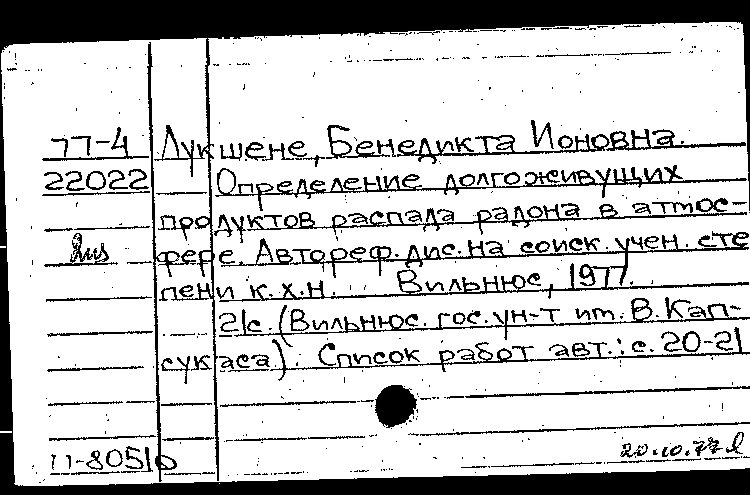 77-4 Лукшене, Бенедикта Ионовна.
22022 Определение долгоживущих
продуктов распада радона в атмос-
фере. Автореф. дис. на соиск. учен. сте
пени к.х.н. Вильнюс, 1977.
21с. (Вильнюс. гос. ун-т им. В. Кап-
сукаса). Список работ авт.: с. 20-21
11-8051б
20.10.77